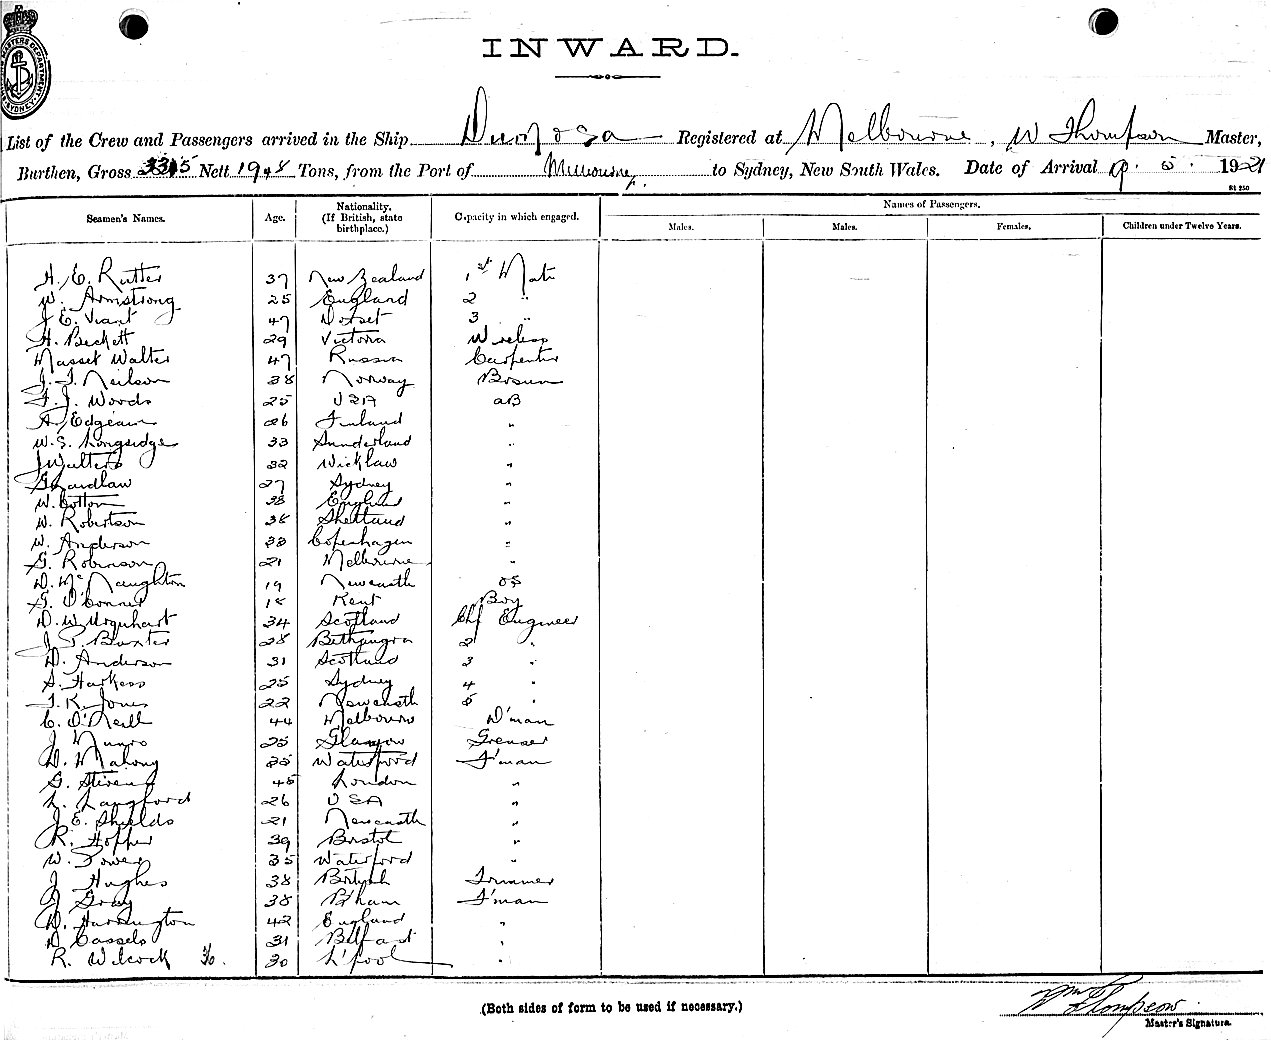 INWARD.
List of the Crew and Passengers arrived in the Ship Registered at Melbourne, W Thompson Master,
Burthen, Gross Nett 1948 Tons, from the Port of Melbourne to Sydney, New South Wales. Date of Arrival 192
Names of Passengers.
Seamen's Names. Age. Nationality. (If British, state birthplace.) Capacity in which engaged. Males. Males. Females. Children under Twelve Years.
H. E. Rutter 37 New Zealand 1st Mate
W. Armstrong 25 England 2 "
J E. Viant 47 Dorset 3 "
H. Beckett 29 Victoria Wireless
Masset Walter 47 Russia Carpenter
J. J. Neilson 38 Norway Bosun
F. J. Woods 25 USA AB
A. Edgean 26 Finland "
W. S. Longridge 33 Sunderland "
J Walters 32 Wicklaw "
G Laidlaw 27 Sydney "
W. Cotton 38 England "
W. Robertson 38 Shetland "
W. Anderson 33 Copenhagen "
G. Robinson 21 Melbourne "
D. McNaughton 19 Newcastle OS
G. O'Conner Kent Boy
D. W. Urquhart 34 Scotland Chf Engineer
J. P. Baxter 28 Bethungra 2 "
D. Anderson 31 Scotland 3 "
S. Harkess 25 Sydney 4 "
J. K. Jones 22 Newcastle 5 "
C. O'Neill 44 Melbourne D'man
J Munro 25 Glasgow Greaser
D. Mahony 35 Waterford F'man
G. Stevens 45 London "
L. Langford 26 USA "
J. E. Shields 21 Newcastle "
R. Hopper 39 Bristol "
W. Power 35 Waterford "
J Hughes 38 British Trimmer
J Gray 38 B'ham F'man
D. Harrington 42 England "
D Cassels 31 Belfast "
R. Wilcock 30 L'pool "
(Both sides of form to be used if necessary.)
Wm Thompson
Master's Signature.